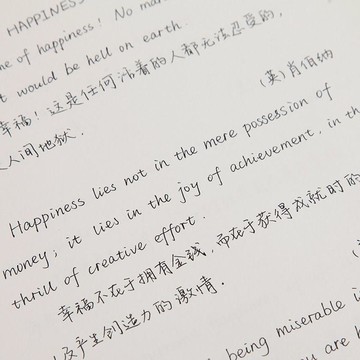 HAPPINESS
me of happiness! No man
t would be hell on earth.
幸福！这是任何活着的人都无法忍受的，
人间地狱.
(英)肖伯纳
Happiness lies not in the mere possession of
money; it lies in the joy of achievement, in the
thrill of creative effort.
幸福不在于拥有金钱，而在于获得成就时的
及产生创造力的激情.
being miserable i
are h